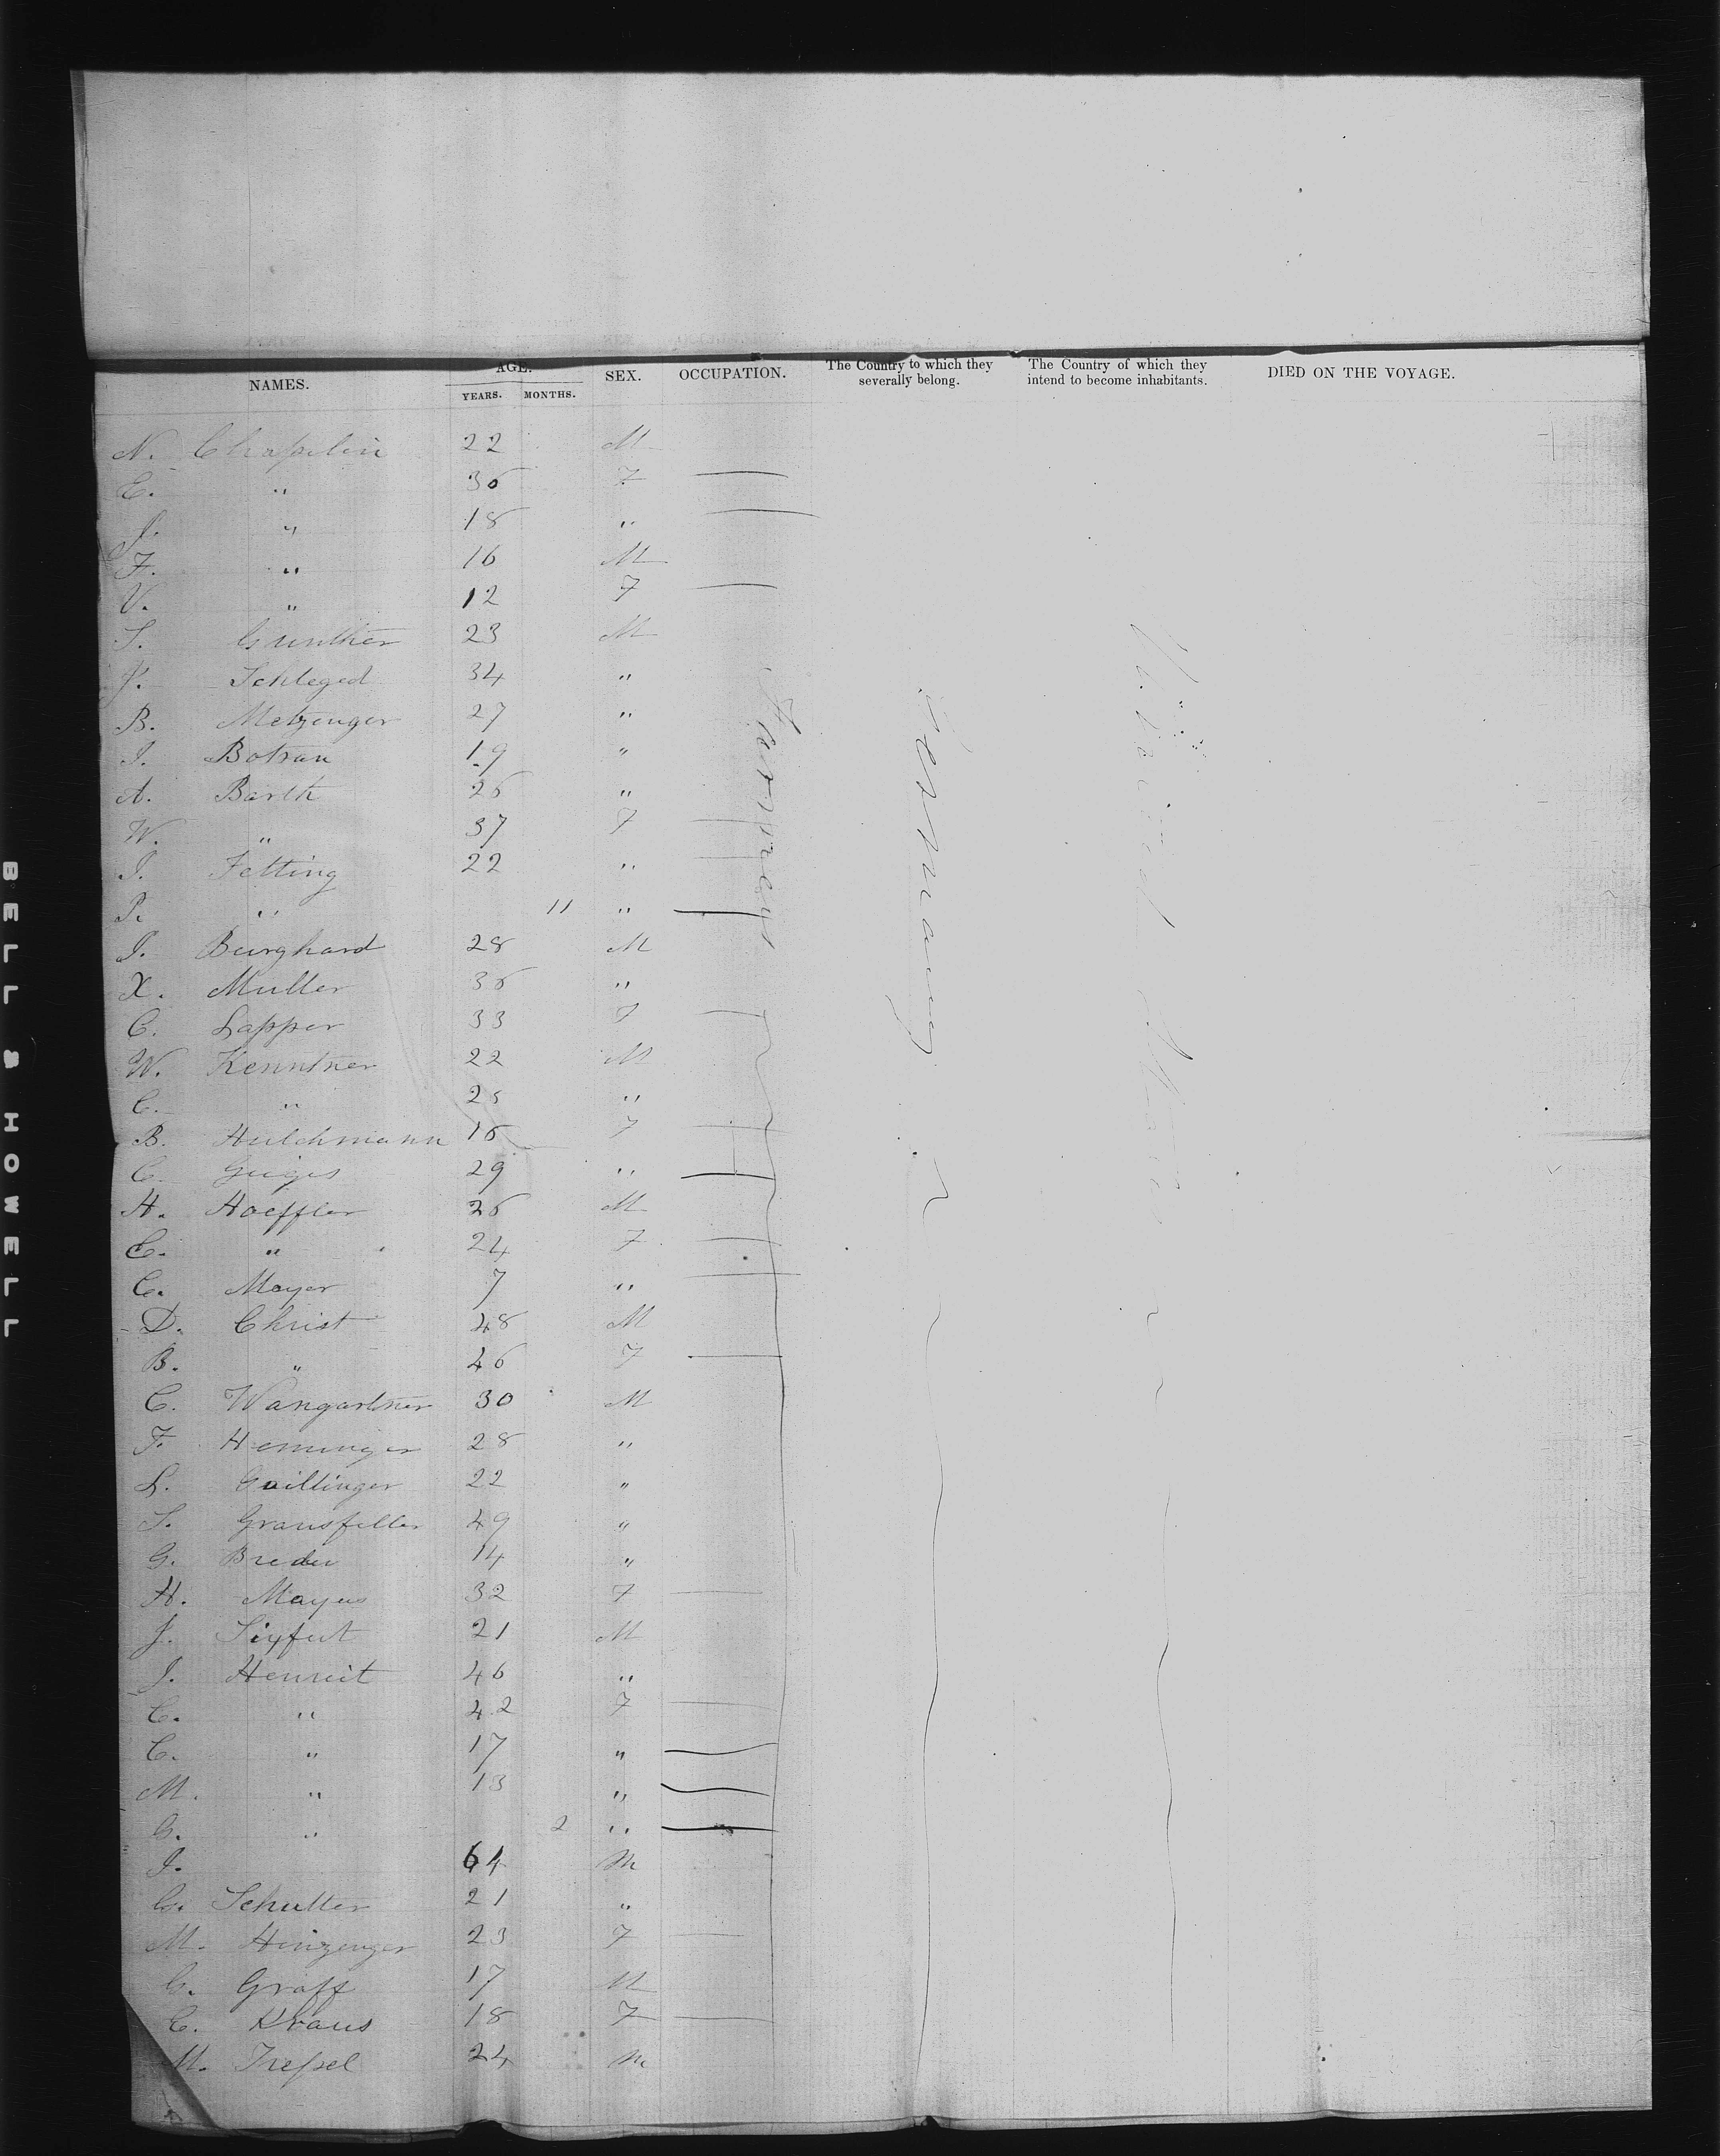 NAMES. AGE. YEARS. MONTHS. SEX. OCCUPATION. The Country to which they severally belong. The Country of which they intend to become inhabitants. DIED ON THE VOYAGE.
N. Chapelin 22 M
E. " 36 F
J. " 18 "
F. " 16 M
V. " 12 F
S. Gunther 23 M
J. Schleged 34 "
B. Metzenger 27 "
I. Botran 19 "
A. Barth 26 "
W. " 37 F
I. Fetting 22 "
P. " 11 "
I. Burghard 28 M
X. Muller 36 "
C. Lapper 33 F
W. Kenntner 22 M
C. " 25 "
B. Hulchmann 16 F
C. Geiges 29 "
H. Hoeffler 26 M
C. " 24 F
C. Mayer 7 "
D. Christ 48 M
B. " 46 F
C. Wangartner 30 M
F. Hemminger 28 "
L. Gaillinger 22 "
S. Gransfeller 49 "
G. Breder 14 "
H. Mayus 32 F
J. Siyfert 21 M
J. Henreit 46 "
C. " 42 F
C. " 17 "
M. " 13 "
G. " 2 "
I. 64 M
G. Schutter 21 "
M. Hinzenger 23 F
G. Graff 17 M
C. Kraus 18 F
M. Trefsel 24 M
Farmers
Germany
United States
BELL & HOWELL